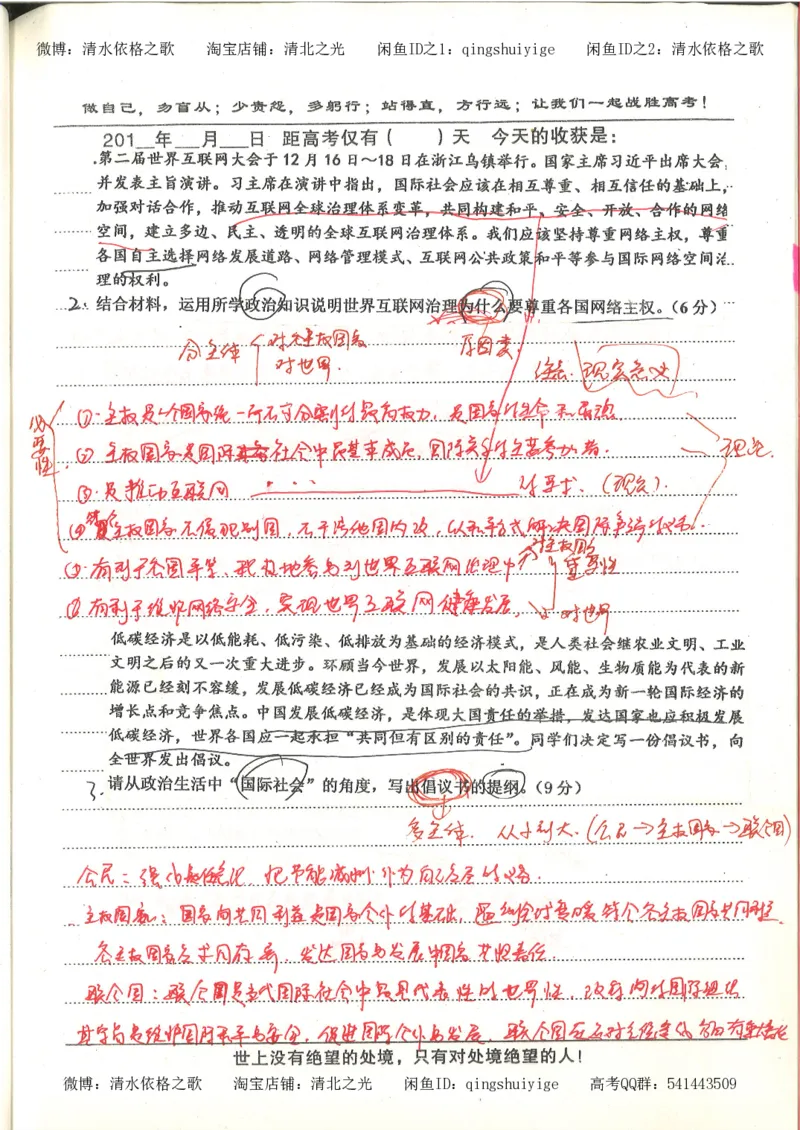 微博：清水依格之歌 淘宝店铺：清北之光 闲鱼ID之1：qingshuiyige 闲鱼ID之2：清水依格之歌
做自己，勿盲从；少责怨，多躬行；站得直，方行远；让我们一起战胜高考！
201__年___月___日 距高考仅有（ ）天 今天的收获是：
第二届世界互联网大会于12月16日～18日在浙江乌镇举行。国家主席习近平出席大会，
并发表主旨演讲。习主席在演讲中指出，国际社会应该在相互尊重、相互信任的基础上，
加强对话合作，推动互联网全球治理体系变革，共同构建和平、安全、开放、合作的网络
空间，建立多边、民主、透明的全球互联网治理体系。我们应该坚持尊重网络主权，尊重
各国自主选择网络发展道路、网络管理模式、互联网公共政策和平等参与国际网络空间治
理的权利。
2. 结合材料，运用所学政治知识说明世界互联网治理为什么要尊重各国网络主权。（6分）
分主体 对主权国家 原因类
对世界 现实意义
必要性 ①主权是一个国家统一而不可分割的最高权力，是国家的生命和灵魂.
②主权国家是国际社会中最基本成员，国际关系的主要参加者. 理论
③是推动互联网 … 的要求.（观点）.
主权国家不侵犯别国，不干涉他国内政，以和平方式解决国际争端的义务.
有利于各国平等、积极地参与到世界互联网治理中 对主权国家 重要性
有利于维护网络安全，实现世界互联网健康发展, 对世界
低碳经济是以低能耗、低污染、低排放为基础的经济模式，是人类社会继农业文明、工业
文明之后的又一次重大进步。环顾当今世界，发展以太阳能、风能、生物质能为代表的新
能源已经刻不容缓，发展低碳经济已经成为国际社会的共识，正在成为新一轮国际经济的
增长点和竞争焦点。中国发展低碳经济，是体现大国责任的举措，发达国家也应积极发展
低碳经济，世界各国应一起承担“共同但有区别的责任”。同学们决定写一份倡议书，向
全世界发出倡议。
3. 请从政治生活中“国际社会”的角度，写出倡议书的提纲。（9分）
多主体. 从小到大.（公民→主权国家→联合国）
公民：强化 把节能减排作为自己 的义务.
主权国家：国家间共同利益是国家合作的基础， 各主权国家共同利益.
各主权国家求同存异，发达国家与发展中国家共担责任.
联合国：联合国是当代国际社会中最具代表性的世界性、政府间的国际组织
其宗旨是维护国际和平与安全，促进国际合作与发展，联合国应
世上没有绝望的处境，只有对处境绝望的人！
微博：清水依格之歌 淘宝店铺：清北之光 闲鱼ID：qingshuiyige 高考QQ群：541443509